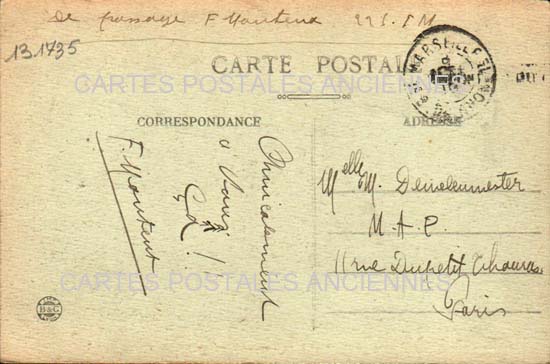 De passage F Montena 22 S. P M
13.1735
CARTE POSTALE
CARTES POSTALES ANCIENNES
MARSEILLE
CORRESPONDANCE
ADRESSE
Amicalement
à Vous
!
F. Montena
Melle M. Demeulemester
M. A. P.
11 rue Dupetit Thouars
Paris
CARTES POSTALES ANCIENNES
B&G